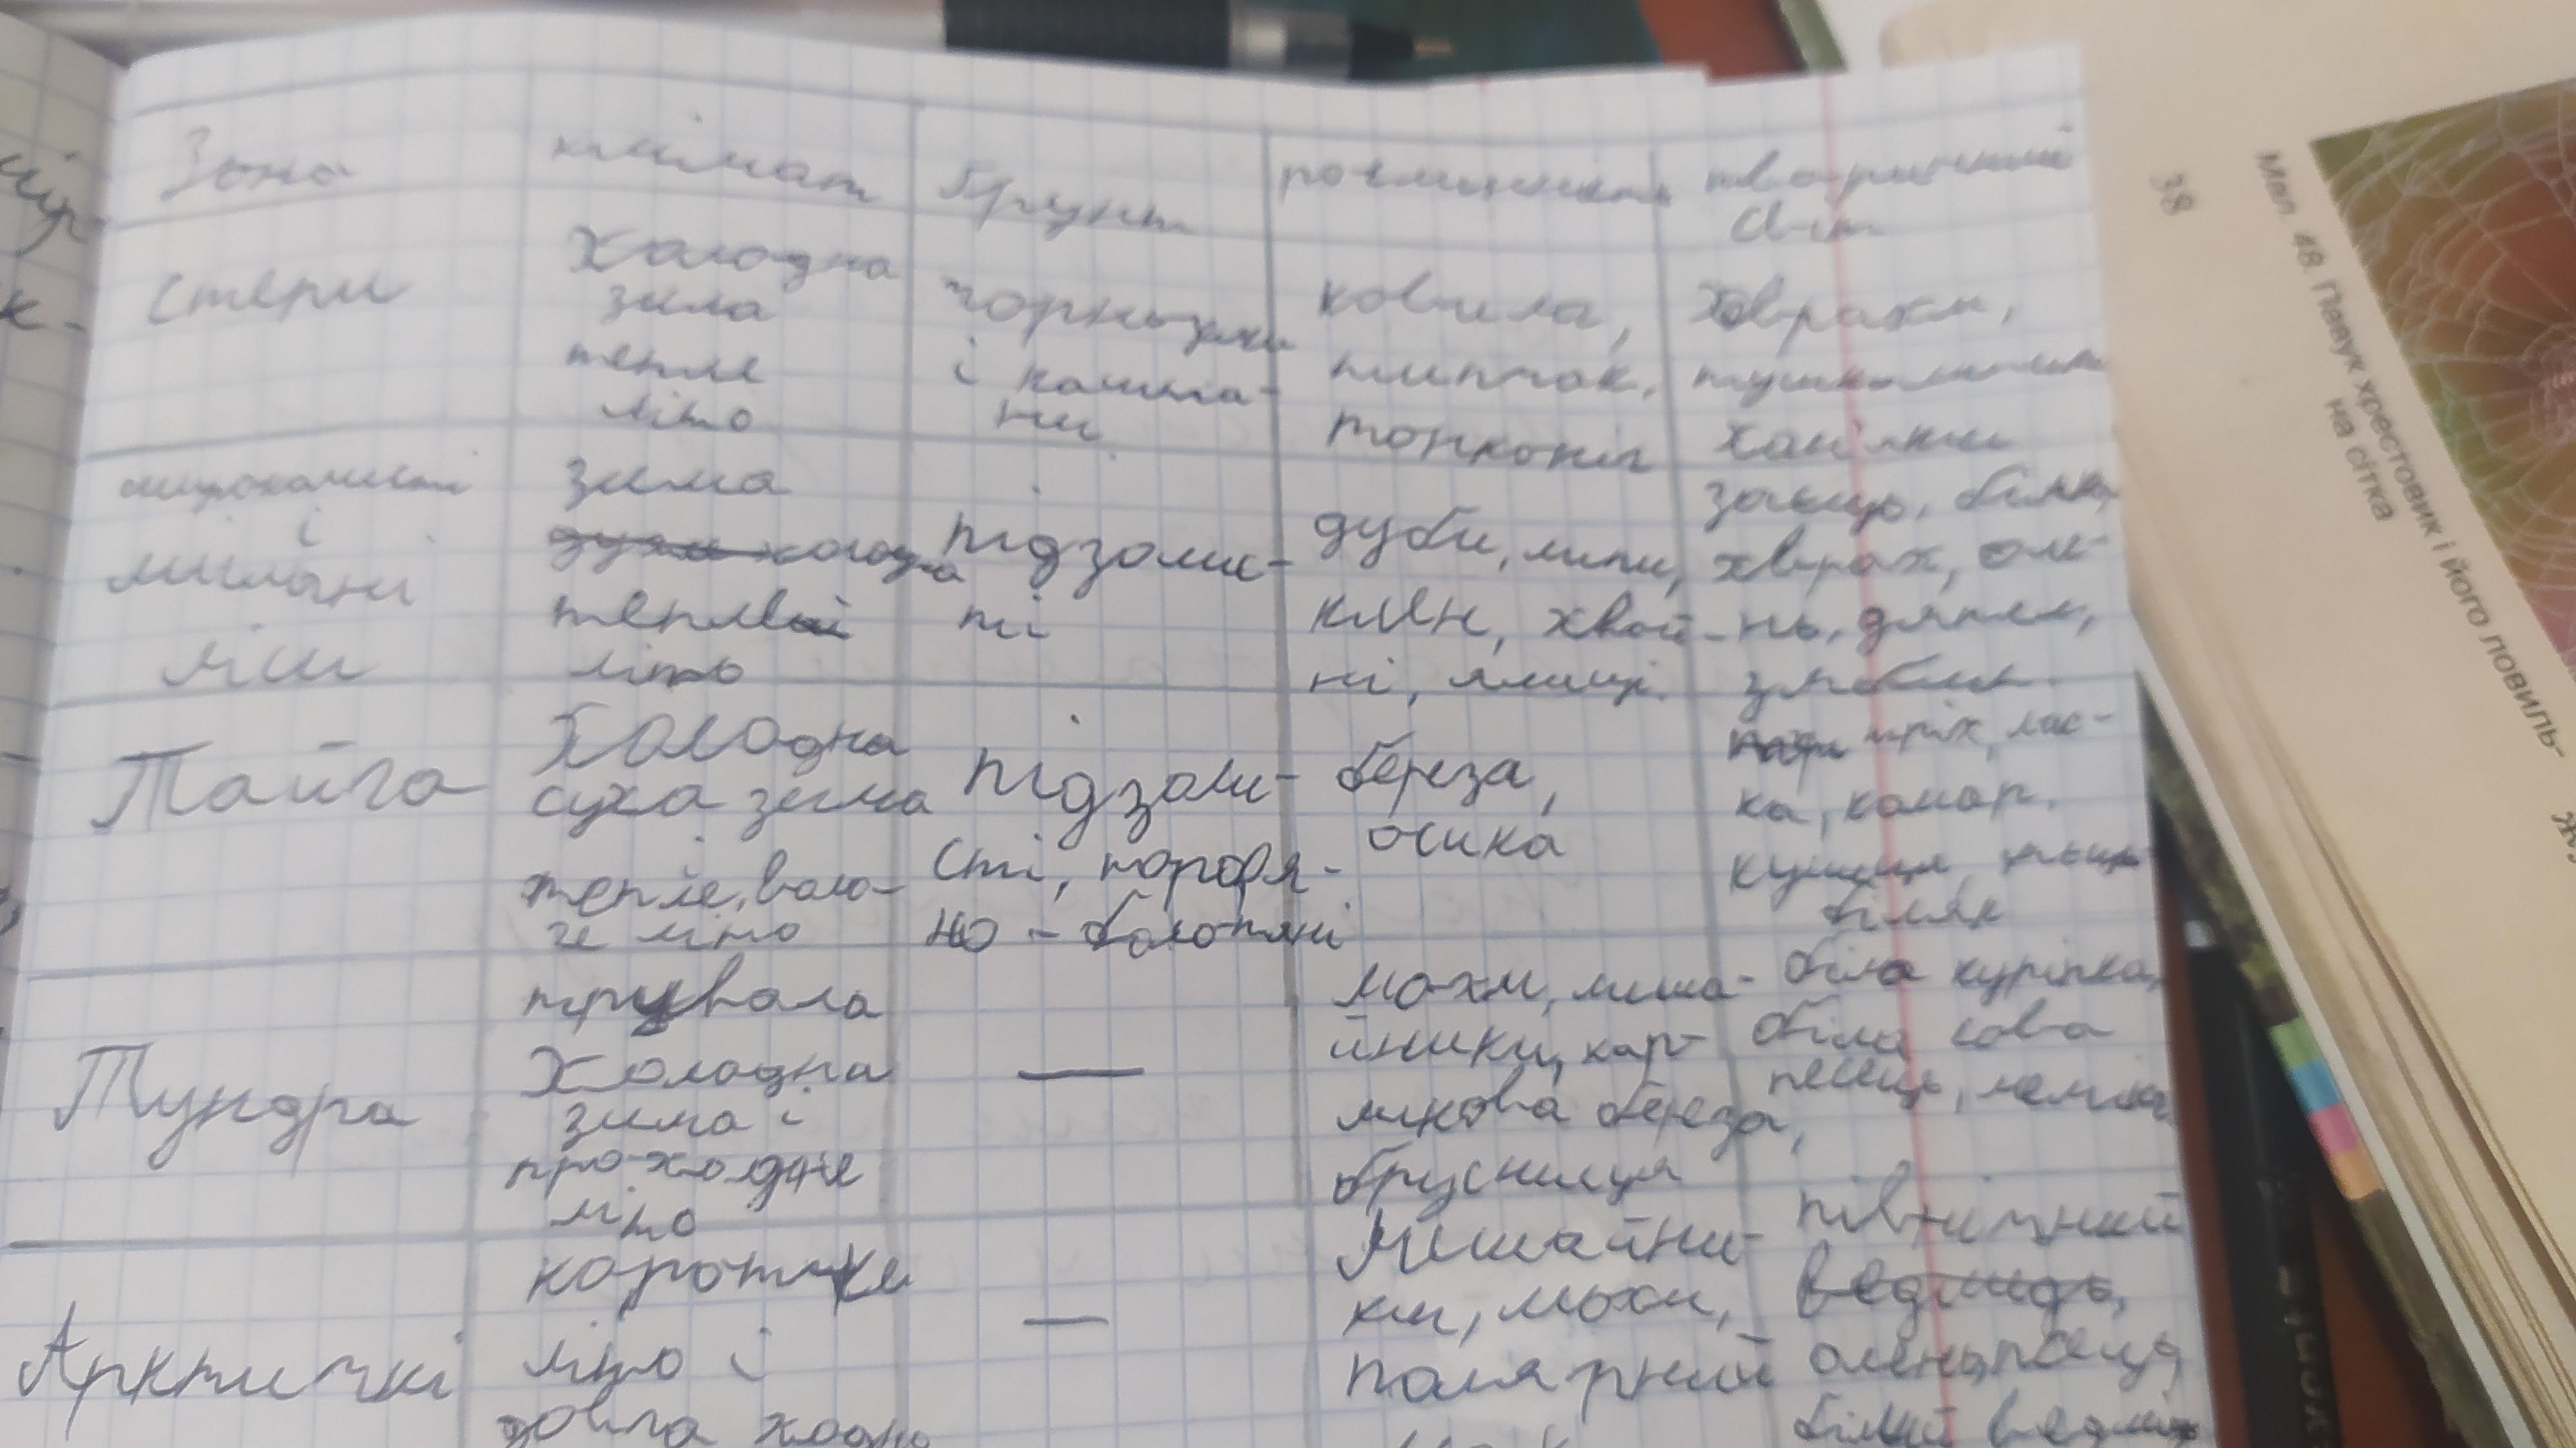 Зона клімат Ґрунт рослинність тваринний
світ
степи Холодна зима тепле літо
чорноземи і кашта-
ни
ковила,
типчак,
тонконіг
Ховрахи,
тушканчики
хом'яки
широколисті
і
мішані
ліси
зима
холодна
тепле
літо
підзолис-
ті
дуби, липи,
клен, хвой-
ні, ялиці.
заєць, білка,
ховрах, оле-
нь, дятел,
зяблик.
Тайга
Холодна
суха зима
тепле, воло-
ге літо
підзоли-
сті, торф'я-
но - болотяні
береза,
осика
тхір, лас-
ка, комар.
куниця, заєць
біляк
Тундра
трувала
Холодна
зима і
прохолдне
літо
—
мохи, лиша-
йники, кар-
ликова береза,
брусниця
біла куріпка,
біла сова
песець, лемінг
Арктичні
коротке
літо і
довга
—
Лишайни-
ки, мохи,
полярний
мак
північний
ведмідь,
олень, песець,
білий ведмідь
38
Мал. 48. Павук хрестовик і його повиль-
на сітка